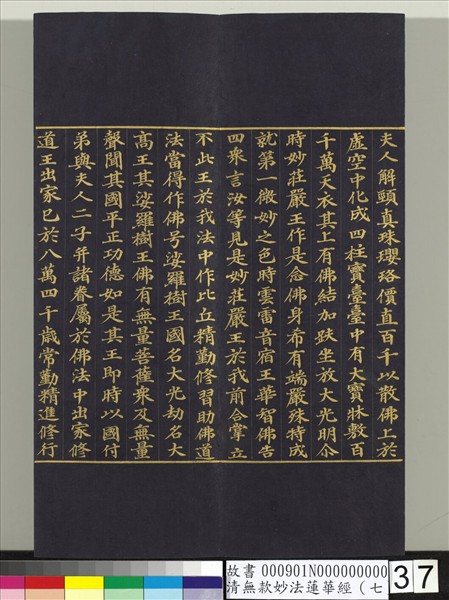 夫人解頸真珠瓔珞價直百千以散佛上於
虛空中化成四柱寶臺臺中有大寶牀敷百
千萬天衣其上有佛結加趺坐放大光明尒
時妙莊嚴王作是念佛身希有端嚴殊特成
就第一微妙之色時雲雷音宿王華智佛告
四眾言汝等見是妙莊嚴王於我前合掌立
不此王於我法中作比丘精勤修習助佛道
法當得作佛号娑羅樹王國名大光劫名大
高王其娑羅樹王佛有無量菩薩眾及無量
聲聞其國平正功德如是其王即時以國付
弟與夫人二子并諸眷屬於佛法中出家修
道王出家已於八萬四千歲常勤精進修行
故書 000901N000000000
清無款妙法蓮華經（七
37